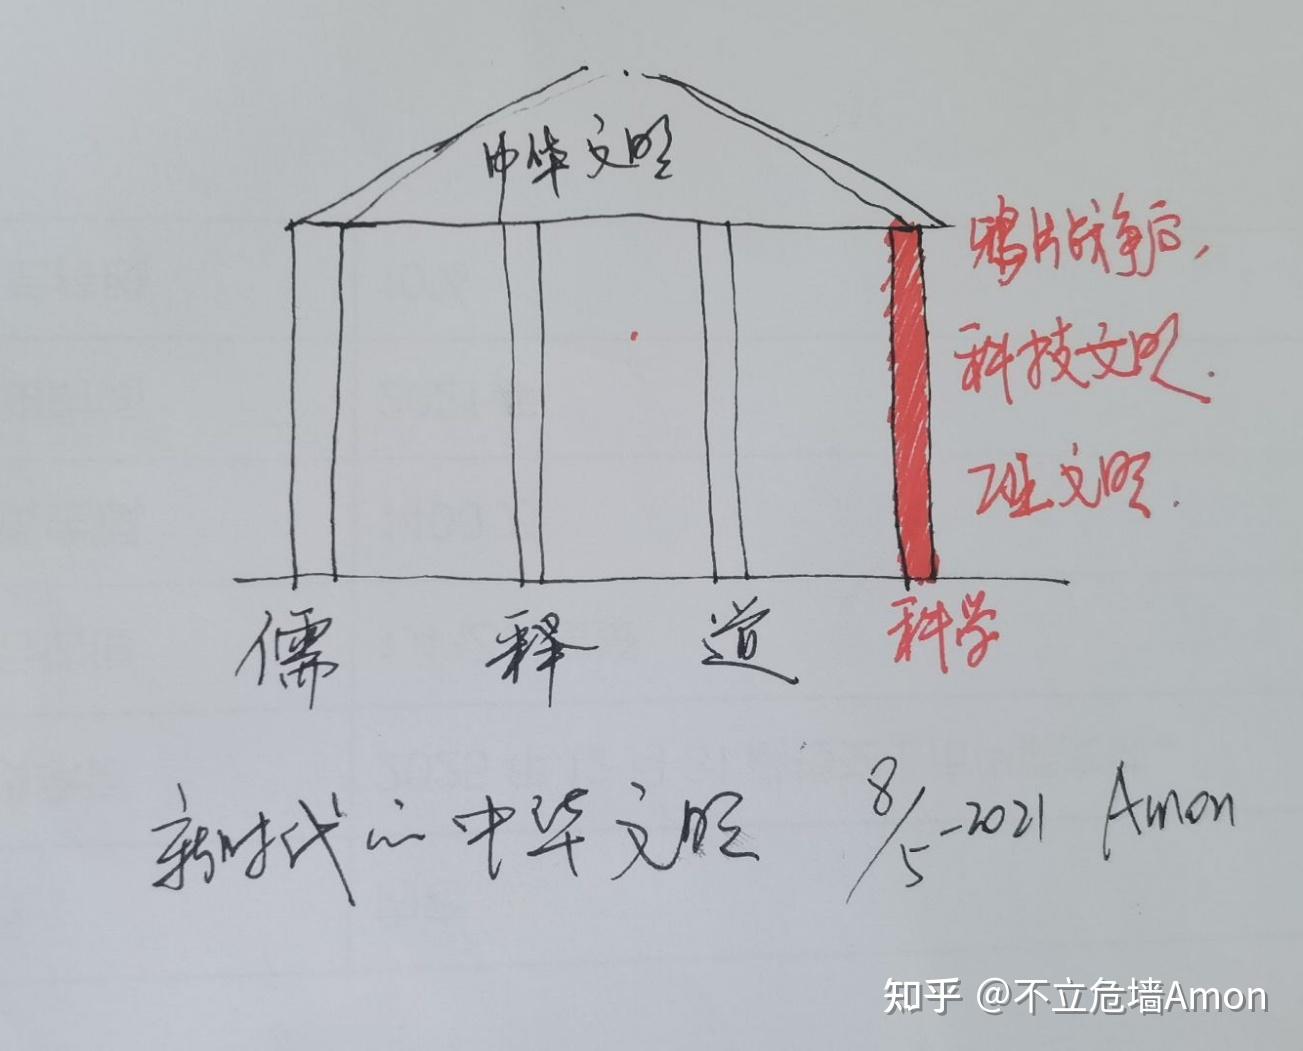 中华文明
鸦片战争后,
科技文明.
工业文明.
儒 释 道 科学
新时代的中华文明 8/5-2021 Amon
知乎 @不立危墙Amon